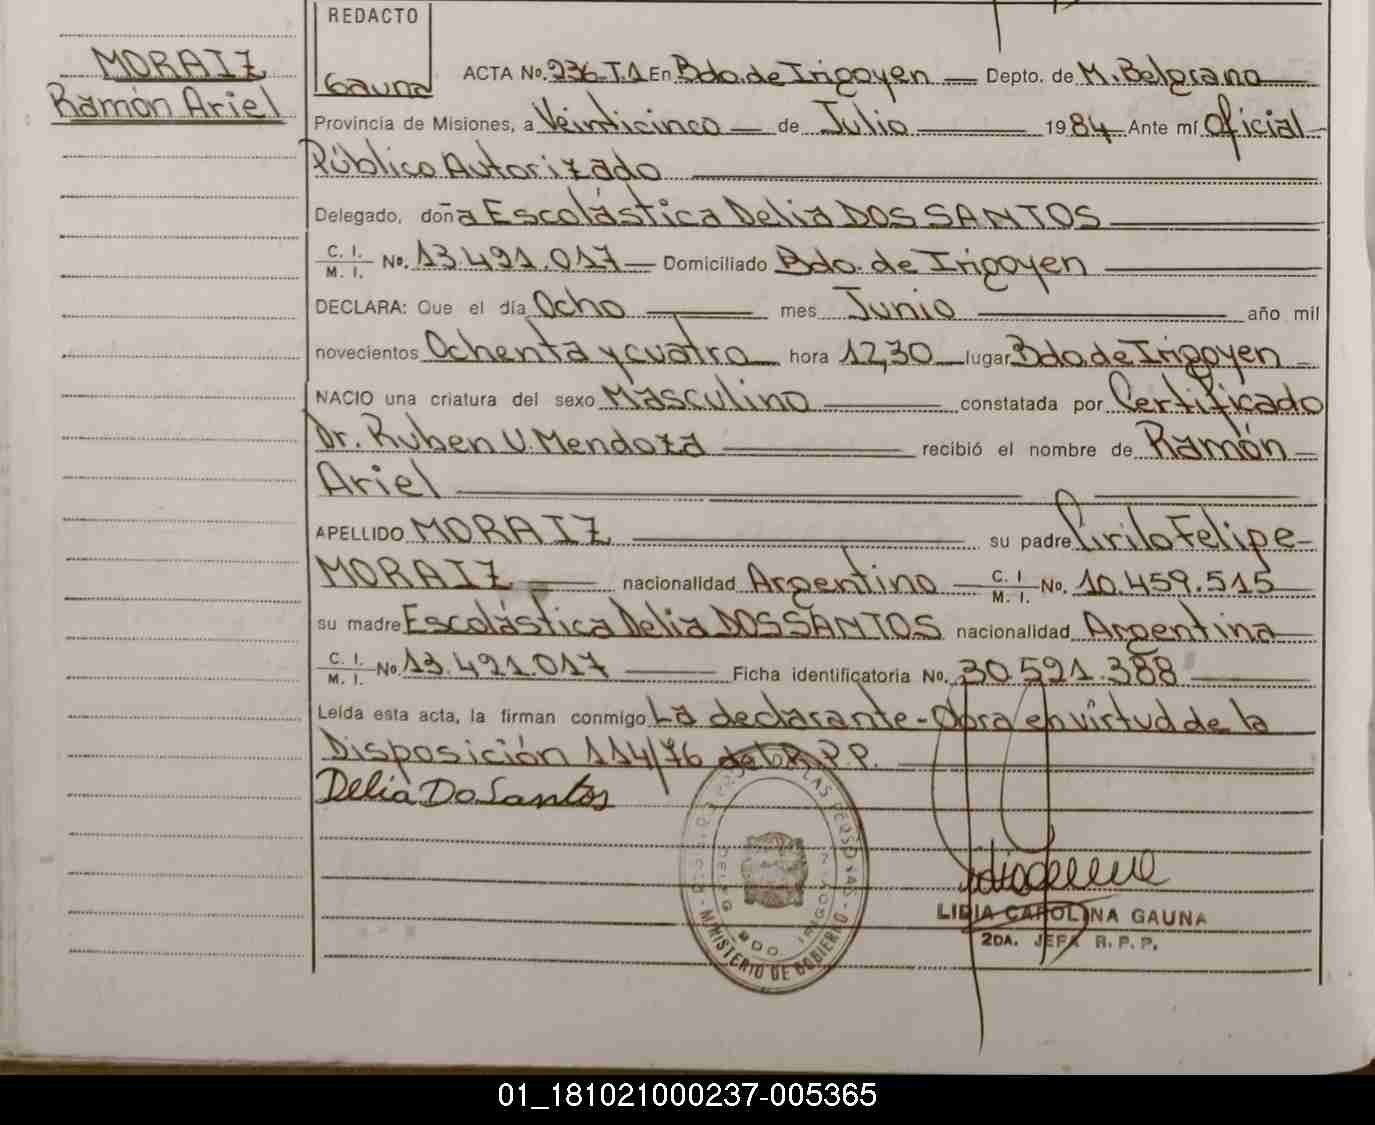 REDACTO
Gauna
MORAIZ
Ramón Ariel
ACTA No. 236-T.1 En Bdo. de Irigoyen Depto. de M. Belgrano
Provincia de Misiones, a Veinticinco de Julio 1984 Ante mí Oficial
Público Autorizado
Delegado, doña Escolástica Delia DOS SANTOS
C. I. / M. I. No. 13.491.017 Domiciliado Bdo. de Irigoyen
DECLARA: Que el día Ocho mes Junio año mil
novecientos Ochenta y cuatro hora 12,30 lugar Bdo. de Irigoyen
NACIO una criatura del sexo Masculino constatada por Certificado
Dr. Ruben V. Mendoza recibió el nombre de Ramón
Ariel
APELLIDO MORAIZ su padre Cirilo Felipe
MORAIZ nacionalidad Argentino C. I. / M. I. No. 10.459.515
su madre Escolástica Delia DOS SANTOS nacionalidad Argentina
C. I. / M. I. No. 13.491.017 Ficha identificatoria No. 30.591.388
Leída esta acta, la firman conmigo La declarante - Obra en virtud de la
Disposición 114/76 de la R.P.P.
Delia Do Santos
LAS PERSONAS
BDO. IRIGOYEN
MINISTERIO DE GOBIERNO
LIDIA CAROLINA GAUNA
2DA. JEFA R. P. P.
01_181021000237-005365